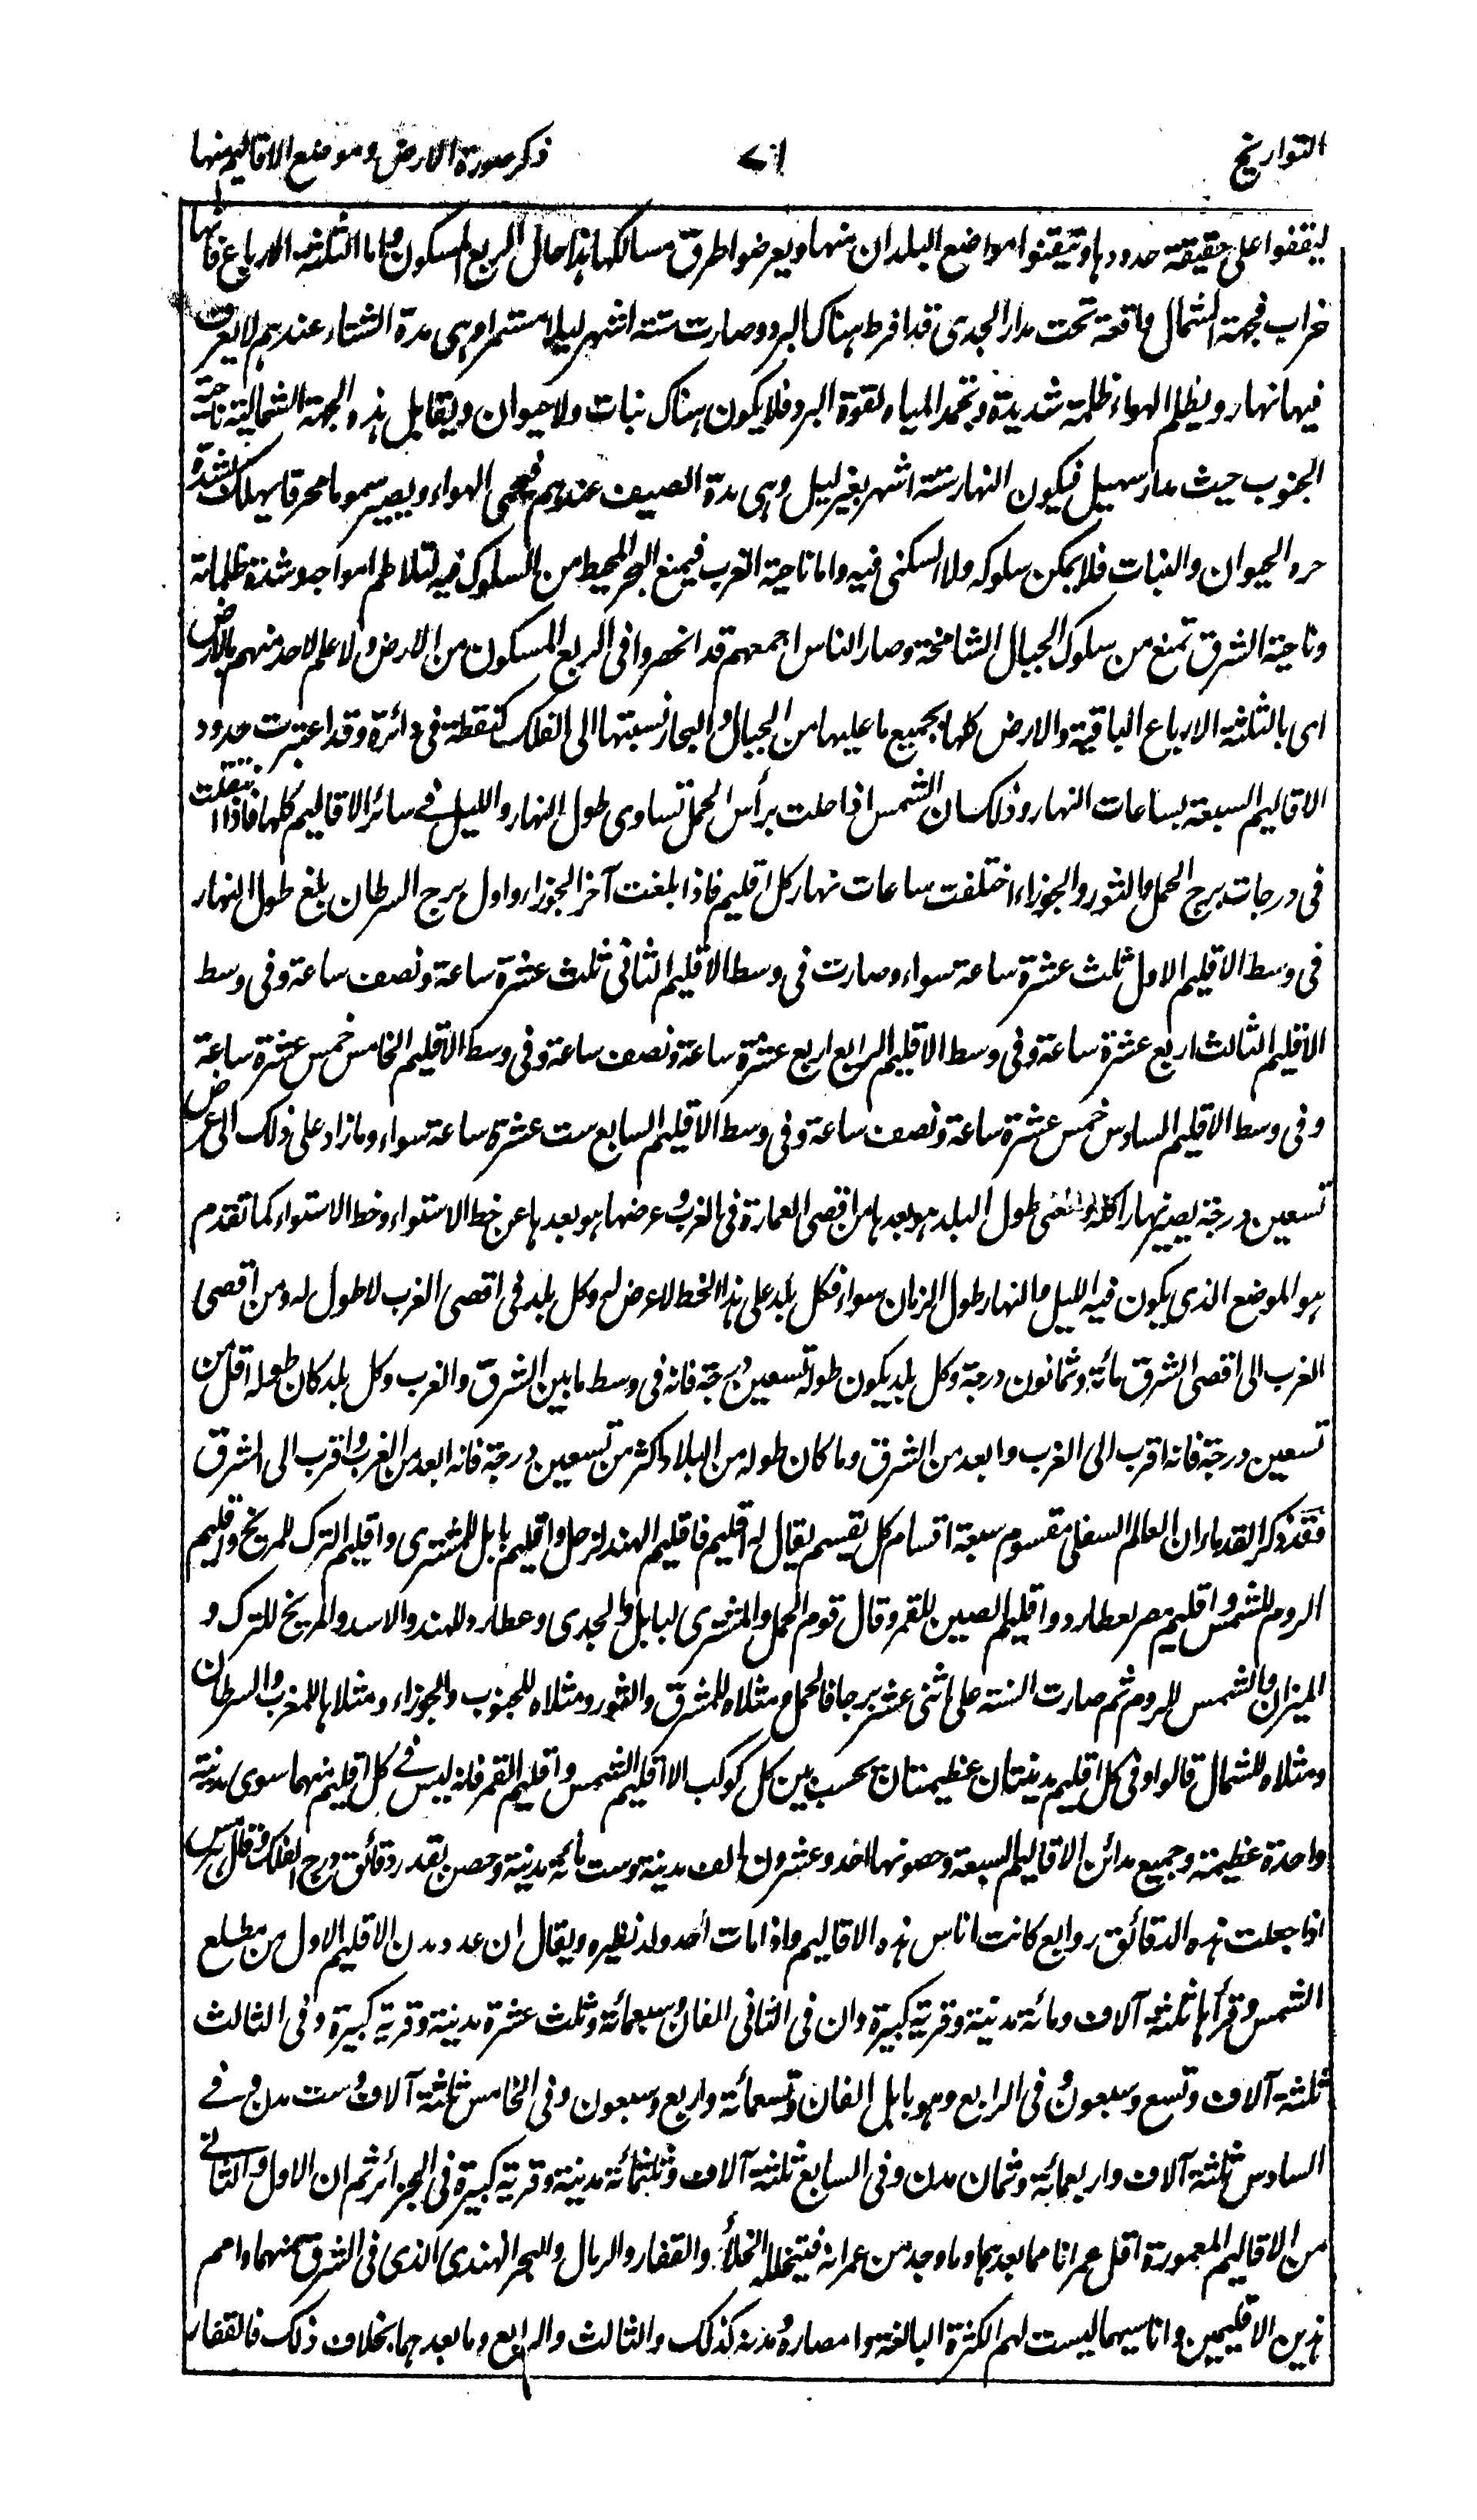 التواريخ
٧١
ذكر صورة الارض وموضع الاقاليم منها
ليقفوا على حقيقة حدودها وتيقنوا مواضع البلدان منها ويعرضوا طرق مسالكها هذا حال الربع المسكون واما الثلثة الارباع فانها
خراب فجهة الشمال واقعة تحت مدار الجدى قد افرط هناك البرد وصارت ستة اشهر ليلا مستمرا وهى مدة الشتاء عندهم لا يعرف
فيها نهار ويظلم الهواء ظلمة شديدة وتجمد المياه لقوة البرد فلا يكون هناك نبات ولا حيوان ويقابل هذه الجهة الشمالية ناحية
الجنوب حيث مدار سهيل فيكون النهار ستة اشهر بغير ليل وهى مدة الصيف عندهم فيحمى الهواء ويصير سموما محرقا يهلك بشدة
حره الحيوان والنبات فلا يمكن سلوكه ولا السكنى فيه واما ناحية الغرب فيمنع البحر المحيط من السلوك فيه لتلاطم امواجه وشدة ظلماته
وناحية الشرق تمنع من سلوك الجبال الشامخة وصار الناس اجمعهم قد انحصروا فى الربع المسكون من الارض ولا علم لاحد منهم بالارض
اى بالثلثة الارباع الباقية والارض كلها بجميع ما عليها من الجبال والبحار نسبتها الى الفلك كنقطة فى دائرة وقد اعتبرت حدود
الاقاليم السبعة بساعات النهار وذلك ان الشمس اذا حلت برأس الحمل تساوى طول النهار والليل فى سائر الاقاليم كلها فاذا انتقلت
فى درجات برج الحمل والثور والجوزاء اختلفت ساعات نهار كل اقليم فاذا بلغت آخر الجوزاء واول برج السرطان بلغ طول النهار
فى وسط الاقليم الاول ثلث عشرة ساعة سواء وصارت فى وسط الاقليم الثانى ثلث عشرة ساعة ونصف ساعة وفى وسط
الاقليم الثالث اربع عشرة ساعة وفى وسط الاقليم الرابع اربع عشرة ساعة ونصف ساعة وفى وسط الاقليم الخامس خمس عشرة ساعة
وفى وسط الاقليم السادس خمس عشرة ساعة ونصف ساعة وفى وسط الاقليم السابع ست عشرة ساعة سواء وما زاد على ذلك الى عرض
تسعين درجة يصير نهارا كله ومعنى طول البلد هو بعدها من اقصى العمارة فى الغرب وعرضها هو بعدها عن خط الاستواء وخط الاستواء كما تقدم
هو الموضع الذى يكون فيه الليل والنهار طول الزمان سواء فكل بلد على هذا الخط لا عرض له وكل بلد فى اقصى الغرب لا طول له ومن اقصى
الغرب الى اقصى الشرق مائة وثمانون درجة وكل بلد يكون طوله تسعين درجة فانه فى وسط ما بين الشرق والغرب وكل بلد كان طوله اقل من
تسعين درجة فانه اقرب الى الغرب وابعد من الشرق وما كان طوله من البلاد اكثر من تسعين درجة فانه ابعد من الغرب واقرب الى الشرق
فقد ذكر القدماء ان العالم السفلى مقسوم سبعة اقسام كل تقسيم يقال له اقليم فاقليم الهند لزحل واقليم بابل للمشترى واقليم الترك للمريخ واقليم
الروم للشمس واقليم مصر لعطارد واقليم الصين للقمر وقال قوم الحمل والمشترى لبابل والجدى وعطارد للهند والاسد والمريخ للترك و
الميزان والشمس للروم ثم صارت السنة على اثنى عشر برجا فالحمل ومثلاه للشرق والثور ومثلاه للجنوب والجوزاء ومثلاها للمغرب والسرطان
ومثلاه للشمال قالوا وفى كل اقليم مدينتان عظيمتان بحسب بين كل كوكب الا اقليم الشمس واقليم القمر فانه ليس فى كل اقليم منهما سوى مدينة
واحدة عظيمة وجميع مدائن الاقاليم السبعة وحصونها احد وعشرون الف مدينة وست مائة مدينة وحصن بقدر دقائق درج الفلك وقال هرمس
اذا جعلت هذه الدقائق روابع كانت اناس هذه الاقاليم واذا مات أحد ولد نظيره ويقال ان عدد مدن الاقليم الاول من مطلع
الشمس وقرأها ثلثة آلاف ومائة مدينة وقرية كبيرة وان فى الثانى الفان وسبعمائة وثلث عشرة مدينة وقرية كبيرة وفى الثالث
ثلثة آلاف وتسع وسبعون وفى الرابع وهو بابل الفان وتسعمائة واربع وسبعون وفى الخامس ثلثة آلاف وست مدن وفى
السادس ثلثة آلاف واربعمائة وثمان مدن وفى السابع ثلثة آلاف وثلثمائة مدينة وقرية كبيرة فى الجزائر ثم ان الاول والثانى
من الاقاليم المعمورة اقل عمرانا مما بعدهما وما وجد من عمرانه فيتخلله الخلأ والقفار والرمال والبحر الهندى الذى فى الشرق منهما وامم
هذين الاقليمين واناسيهما ليست لهم الكثرة البالغة وامصاره ومدنه كذلك والثالث والرابع وما بعدهما بخلاف ذلك فالقفار